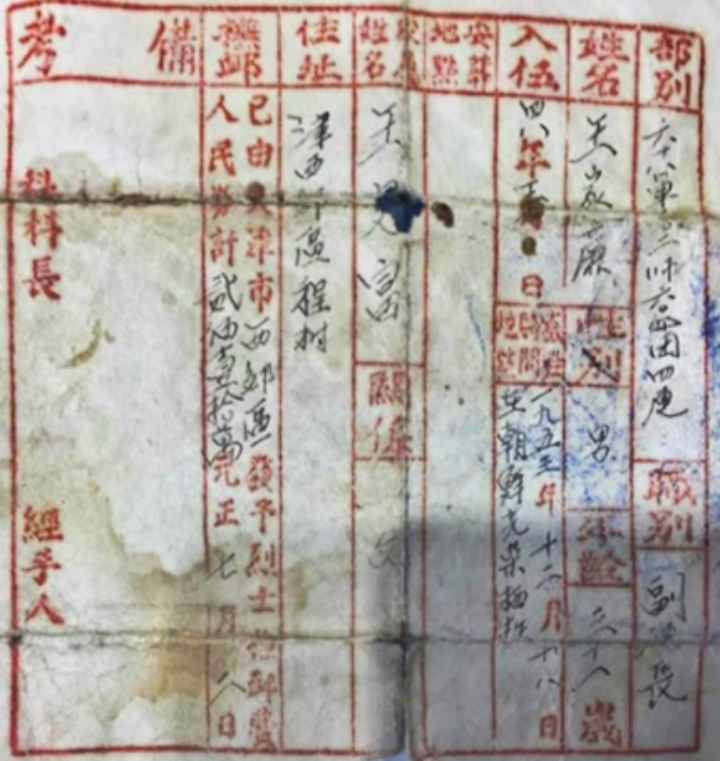 部別
六八軍 師 团四连
職別
副 長
姓名
王
性別
男
年齡
三十 歲
入伍
四八年 日
犧牲時間地點
一九五三年十二月十八日
在朝鮮光荣牺牲
安葬地點
家屬姓名
王 富
關係
父
住址
津西郊區程村
撫卹
已由天津市西郊區發予烈士撫卹費
人民券計貳佰壹拾萬元正七月 八日
備考
科長
經手人